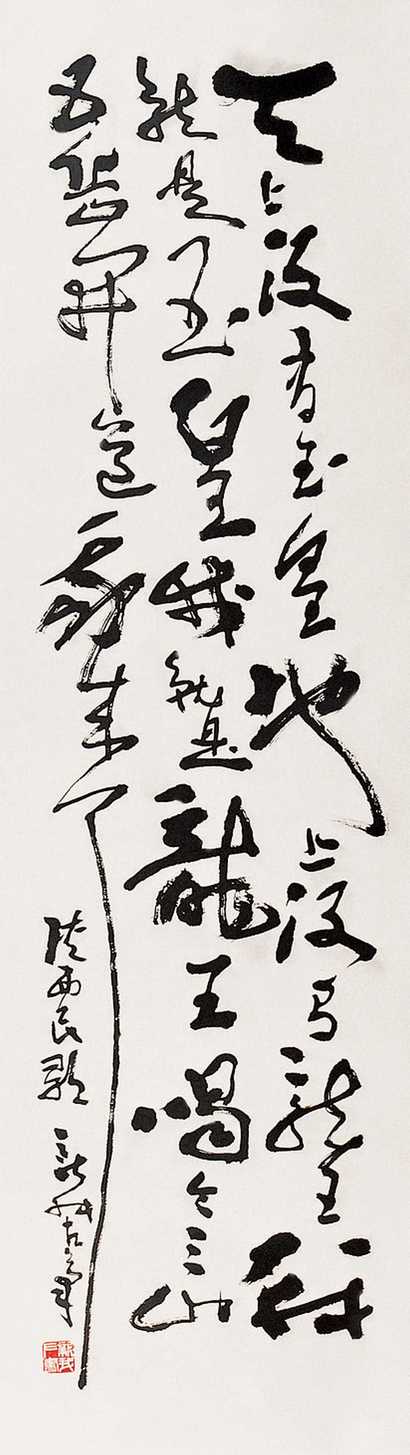 天上没有玉皇地上没有龍王我
就是玉皇我就是龍王喝令三山
五岳開道我来了
陕西民歌 新我左筆